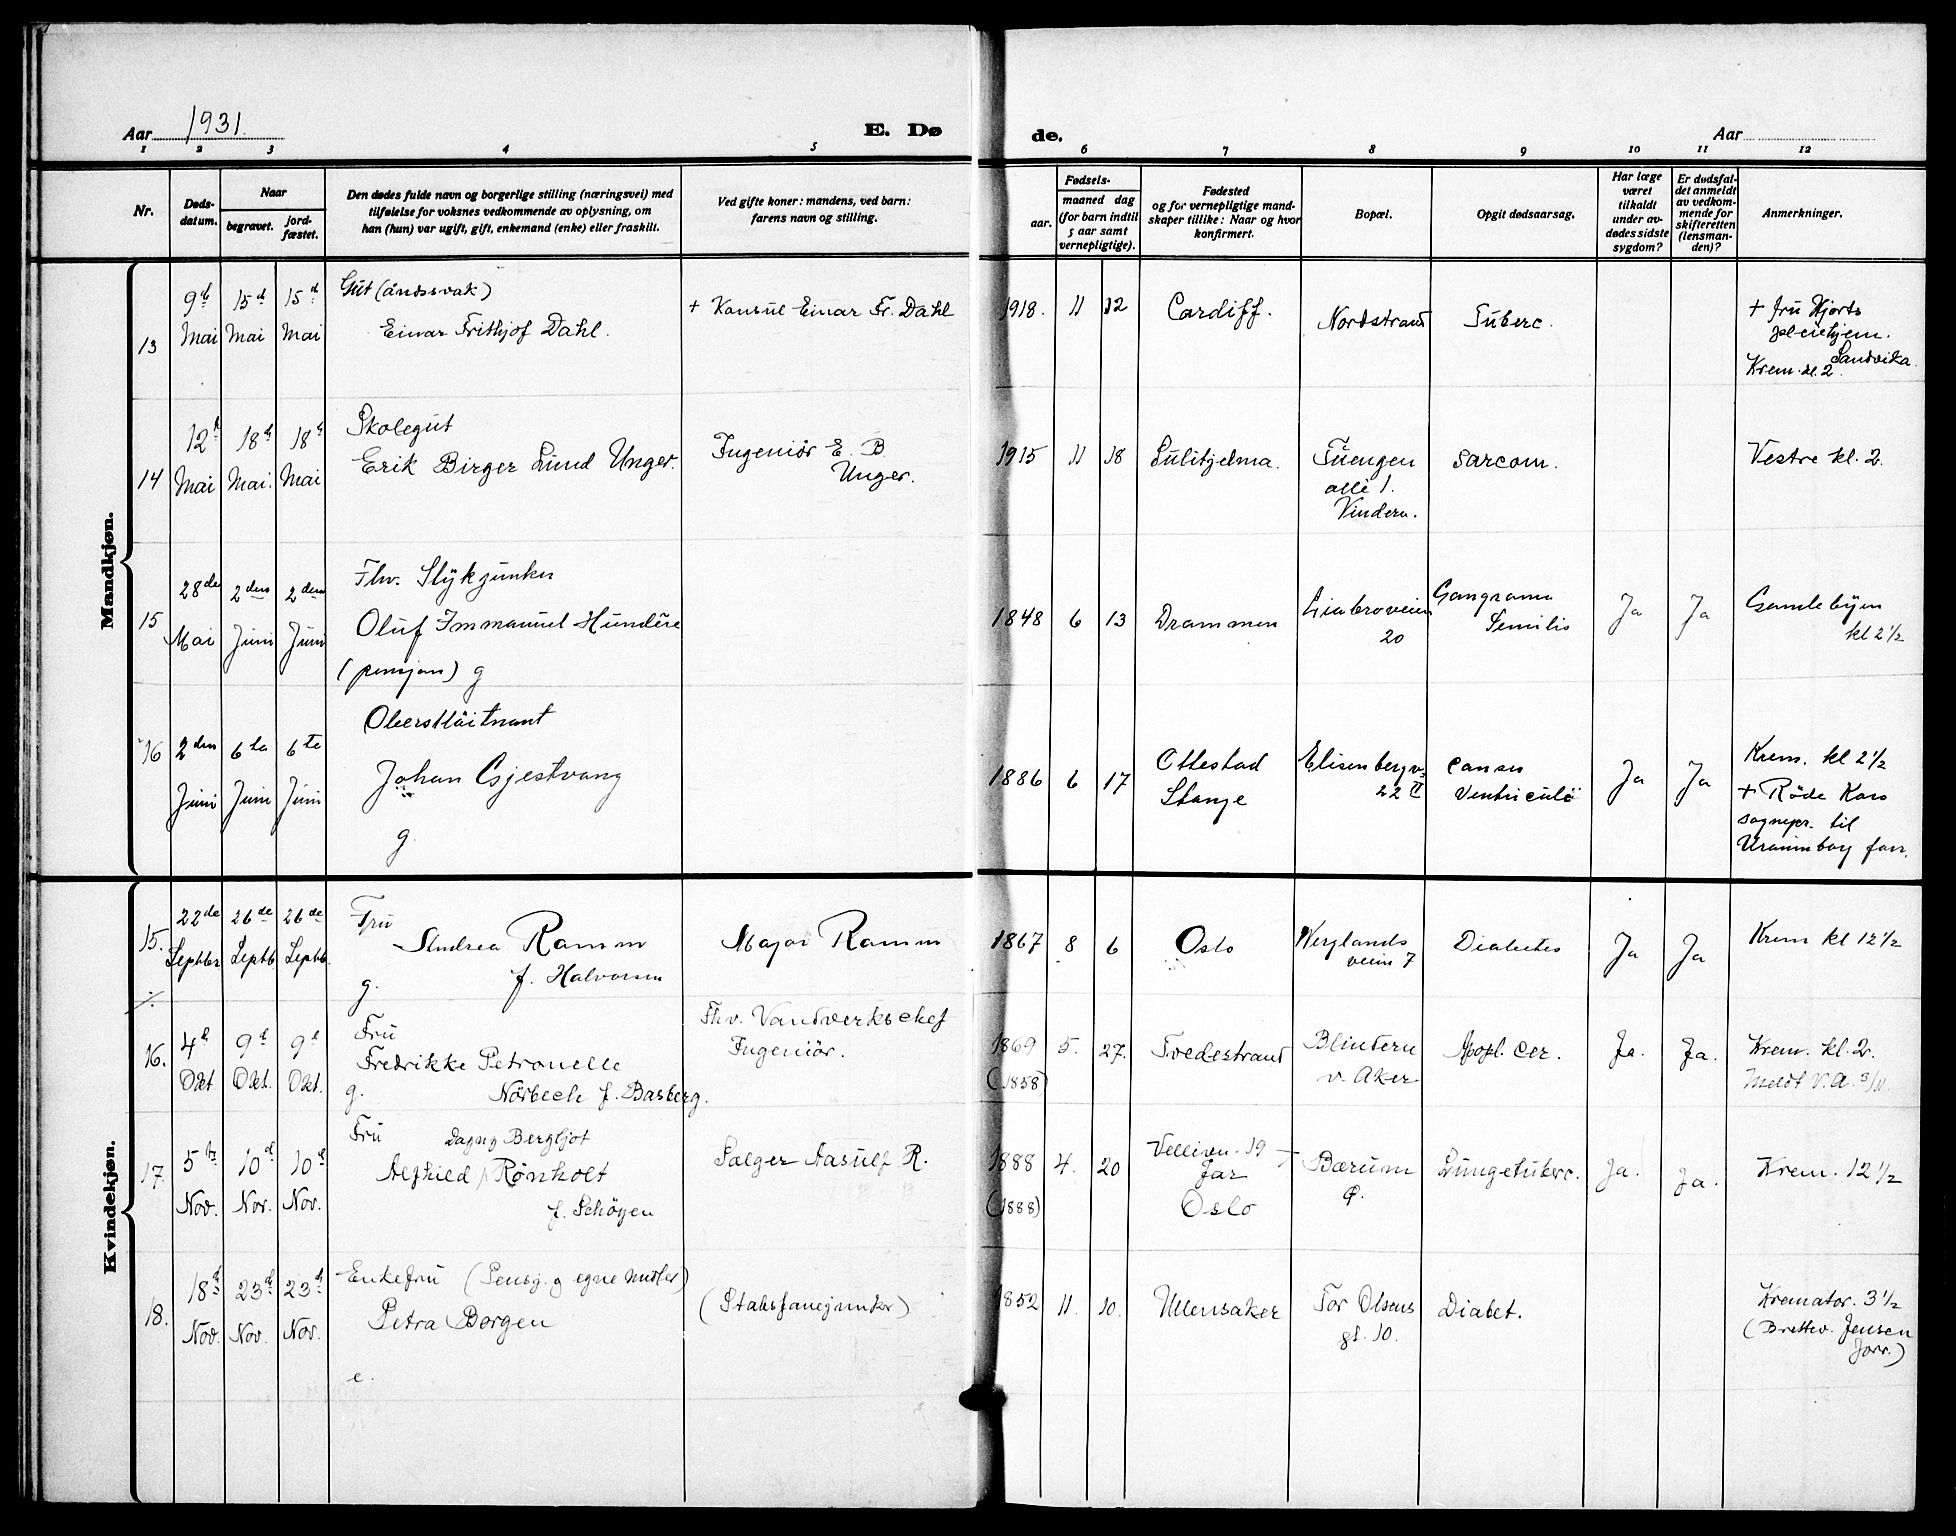 Aar 1931.
E. Dø
de.
Aar
1 2 3 4 5 6 7 8 9 10 11 12
Nr.
Døds-
datum.
Naar
begravet.
jord-
fæstet.
Den dødes fulde navn og borgerlige stilling (næringsvei) med
tilføielse for voksnes vedkommende av oplysning, om
han (hun) var ugift, gift, enkemand (enke) eller fraskilt.
Ved gifte koner: mandens, ved barn:
farens navn og stilling.
Fødsels-
aar.
maaned dag
(for barn indtil
5 aar samt
vernepligtige).
Fødested
og for vernepligtige mand-
skaper tillike: Naar og hvor
konfirmert.
Bopæl.
Opgit dødsaarsag.
Har læge
været
tilkaldt
under av-
dødes sidste
sygdom?
Er dødsfal-
det anmeldt
av vedkom-
mende for
skifteretten
(lensman-
den)?
Anmerkninger.
Mandkjøn.
13
9d
Mai
15d
Mai
15d
Mai
Gut (åndssvak)
Einar Frithjof Dahl.
+ Konsul Einar Fr. Dahl
1918. 11 12
Cardiff.
Nordstrand
Tuberc.
+ Fru Hjorts
pleiehjem.
Sandvika
Krem. kl. 2.
14
12t
Mai
18d
Mai.
18d
Mai
Skolegut
Erik Birger Lund Unger.
Ingeniør E. B.
Unger.
1915 11 18
Sulitjelma.
Tuengen
allè 1.
Vindern.
Sarcom.
Vestre kl. 2.
15
28de
Mai
2den
Juni
2den
Juni
Fhv. Stykjunker
Oluf Immanuel Hundere
(pensjon) g
1848 6 13
Drammen
Liabroveien
20
Gangræna
Senilis
Ja
Ja
Gamlebyen
kl 2 1/2
16
2den
Juni
6te
Juni
6te
Juni
Oberstløitnant
Johan Gjestvang
g.
1886 6 17
Ottestad
Stange
Elisenbergv.
22 II
Cancer
Ventriculi
Ja
Ja
Krem. kl 2 1/2
+ Røde Kors
sognepr. til
Uranienborg forr.
Kvindekjøn.
15.
22de
Septbr
26de
Septb
26de
Septb.
Fru
Andrea Ramm
f. Halvorsen
g.
Major Ramm
1867 8 6
Oslo
Wergelands
veien 7
Diabetes
Ja
Ja
Krem kl 12 1/2
16.
4d
Okt
9d
Okt.
9d
Okt.
Fru
Fredrikke Petronelle
g. Nörbech f. Basberg.
Fhv. Vandverkschef
Ingeniör.
1869 5. 27.
(1858)
Tvedestrand
Blindern
v. Aker
Apopl. cer.
Ja.
Ja.
Krem. kl. 2.
Meldt V.A. 3/11.
17.
5te
Nov.
10d
Nov.
10d
Nov.
Fru Dagny Bergljot
Alfhild Rønholt
f. Schöyen
Sælger Aasulf R.
1888 4. 20
(1888)
Velliven. 19
Jar
Oslo
Bærum
Lungetuberc.
Ja.
Ja.
Krem. 12 1/2
18.
18d
Nov.
23d
Nov.
23d
Nov.
Enkefru (Pensj. og egne midler)
Petra Borgen
e.
(Stabsfanejunker)
1852 11. 10.
Ullensaker
Tor Olsens
gt. 10.
Diabet.
Kremator. 3 1/2
(Brettev. Jensen
forr.)